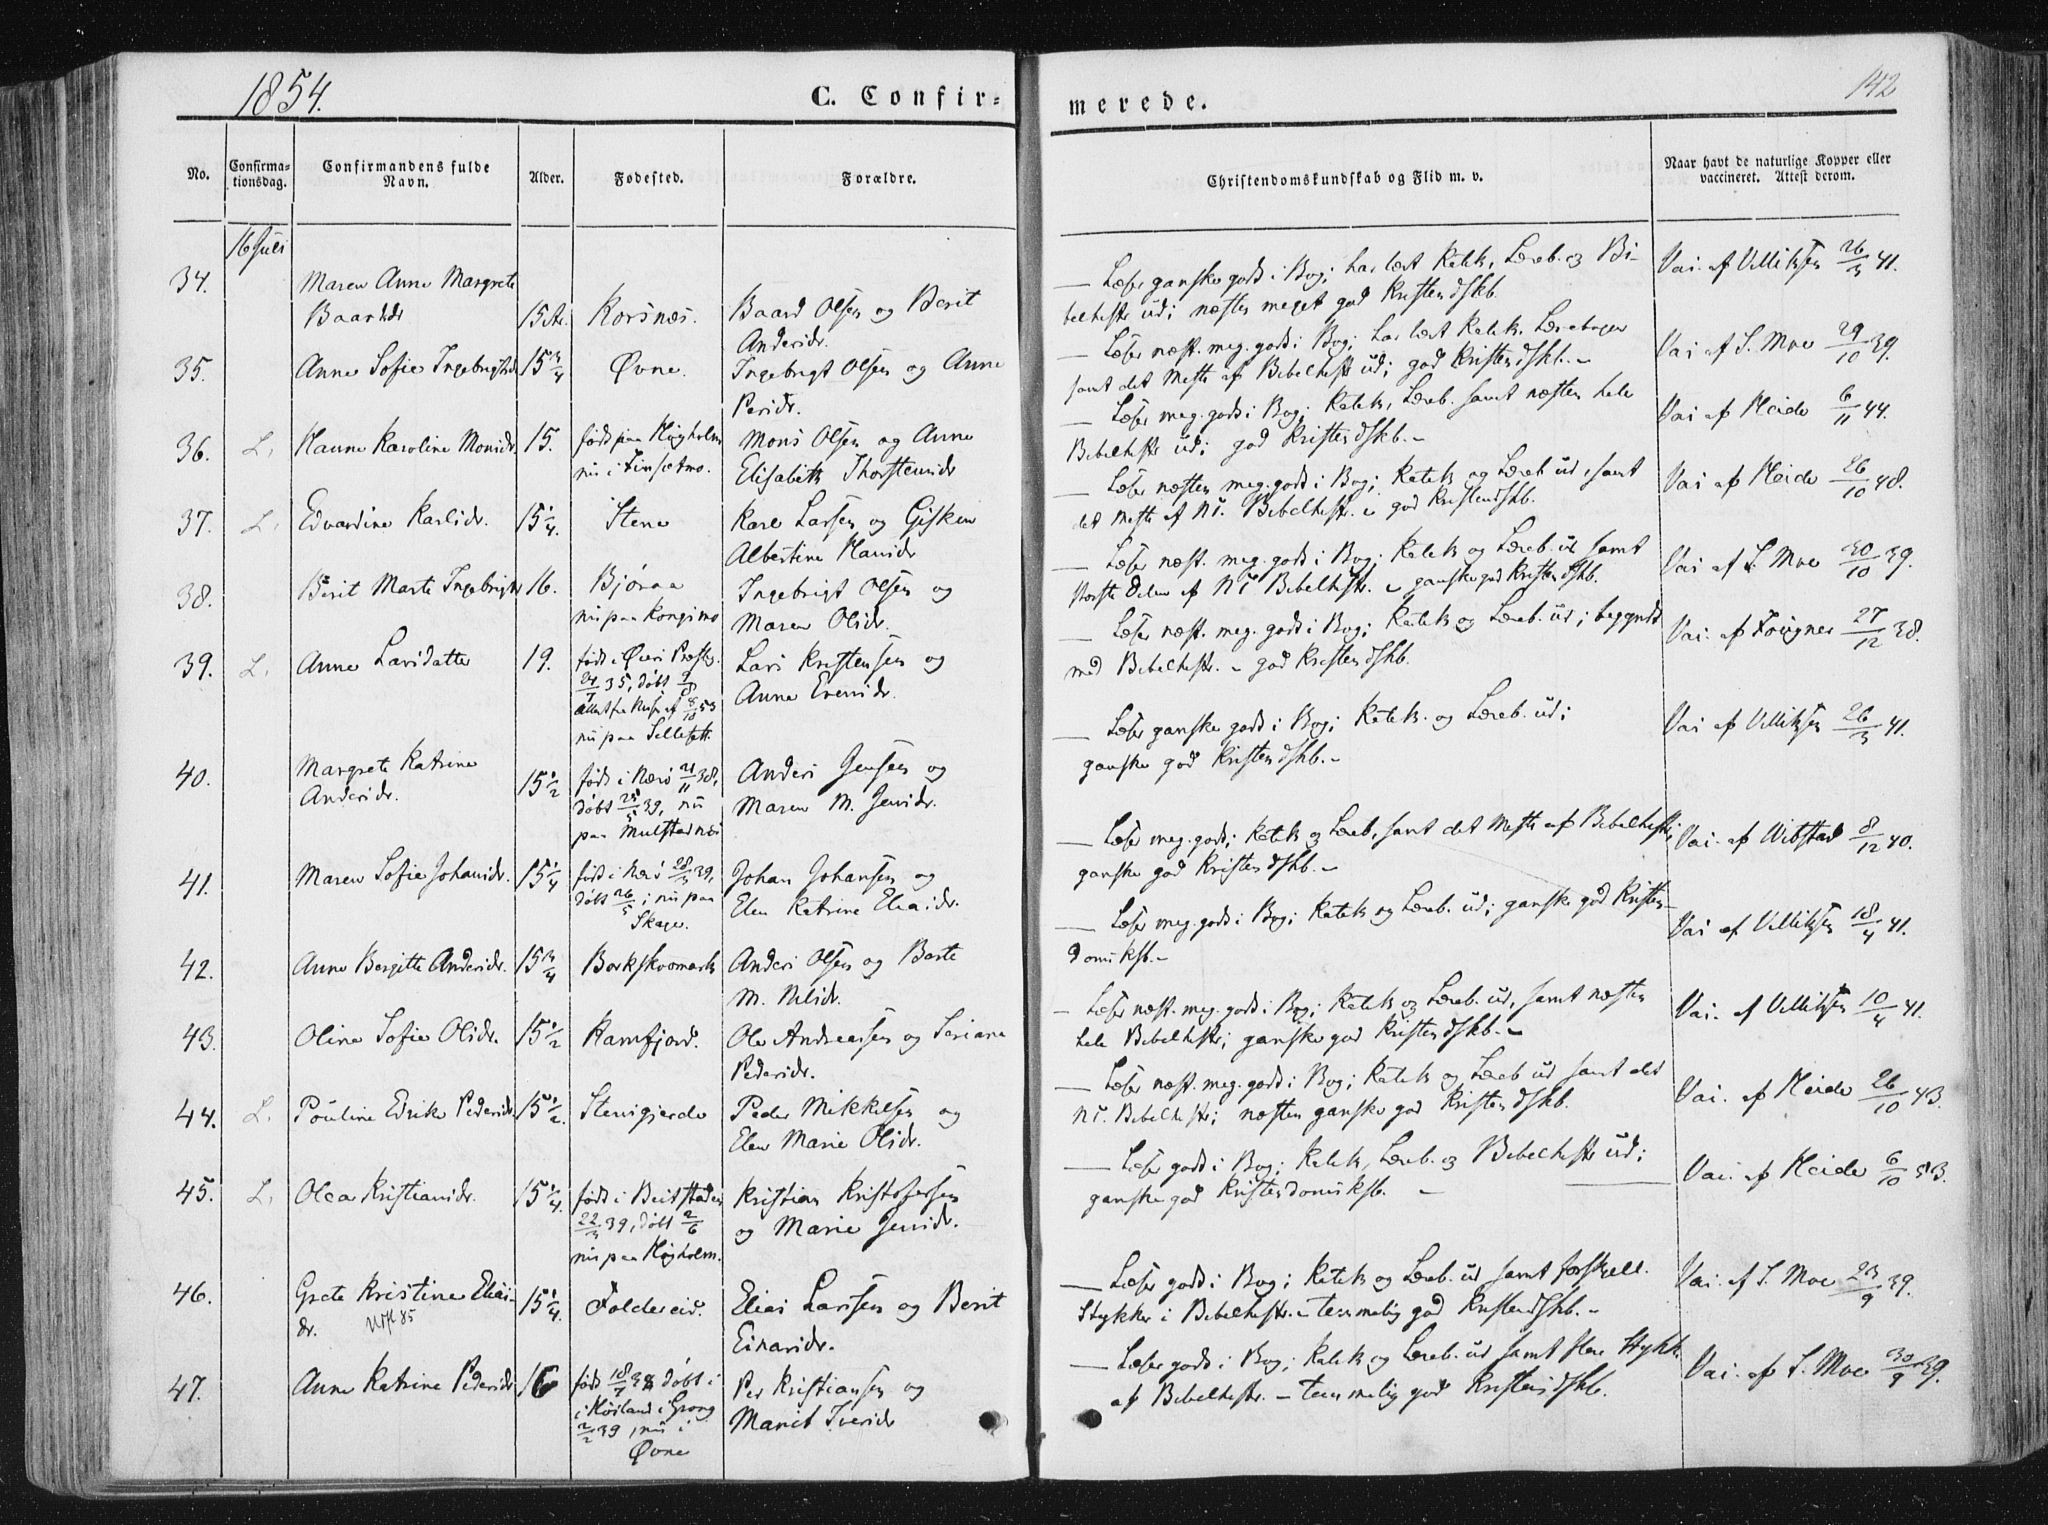 1854.
C. Confir-
merede.
142
No.
Confirma-
tionsdag.
Confirmandens fulde
Navn.
Alder.
Fødested.
Forældre.
Christendomskundskab og Flid m. v.
Naar havt de naturlige Kopper eller
vaccineret. Attest derom.
16 Juli
34.
Maren Anne Margrete
Baardsdr
15 Ar.
Korsnæs.
Baard Olsen og Berit
Andersdr.
— Læser ganske godt i Bog; har lært Katek., Læreb. og Bi-
belhistr ud; næsten meget god Kristendskb.
Vac. af Villiksen 26/3 41.
35.
Anne Sofie Ingebrigtsd
15 3/4
Øvne.
Ingebrigt Olsen og Anne
Persdr.
— Læser næst. meg. godt i Bog; har lært Katek. Lærebogen
samt det Meste af Bibelhistr ud; god Kristendskb. –
Vac af S. Moe 29/10 39.
36.
L.
Hanne Karoline Monsdr.
15.
født paa Høgholm
nu i Finsetmo.
Mons Olsen og Anne
Elisabeth Thorstensdr
— Læser meg. godt i Bog; Katek., Læreb. samt næsten hele
Bibelhistr ud; god Kristendskb. –
Vac af Heide 6/11 44.
37.
L.
Edvardine Karlsdr.
15 1/4.
Stene
Karl Larsen og Gisken
Albertine Hansdr
— Læser næsten meg. godt i Bog; Katek og Læreb ud, samt
det Meste af NT. Bibelhistr. – god Kristendskb.
Vac af Heide 26/10 48.
38.
Berit Marte Ingebrigtsd
16.
Bjøraa
nu paa Kongsmo
Ingebrigt Olsen og
Maren Olsdr.
— Læser næst. meg. godt i Bog; Katek og Læreb. ud samt
største Delen af NT Bibelhistr. – ganske god Kristendskb.
Vac af S. Moe 30/10 39.
39.
L.
Anne Larsdatter
19.
født i Øier Præstg.
24/7 35, døbt 9/8
nu paa
Lars Kristensen og
Anne Evensdr.
— Læser næst. meg. godt i Bog; Katek og Læreb. ud; begyndt
med Bibelhistr. – god Kristendskb.
Vac. af Fougner 27/12 38.
40.
Margrete Katrine
Andersdr.
15 1/2
født i Nærø 21/11 38,
døbt 25/5 39, nu
paa Mulstadnæs
Anders Jensen og
Maren M. Jensdr.
— Læser ganske godt i Bog; Katek. og Læreb. ud;
ganske god Kristendskb. –
Vac af Villiksen 26/3 41.
41.
Maren Sofie Johansdr.
15 1/4
født i Nærø 28/3 39,
døbt 26/5; nu paa
Skage.
Johan Johansen og
Elen Katrine Eliasdr.
— Læser meg. godt; Katek og Læreb., samt det Meste af Bibelhistr;
ganske god Kristendskb. –
Vac. af Wibstad 8/12 40.
42.
Anne Bergitte Andersdr.
15 3/4
Borkskromark
Anders Olsen og Berte
M. Nilsdr.
— Læser meg. godt i Bog; Katek og Læreb. ud; ganske god Kristen-
domsksb. –
Vac af Villiksen 18/4 41.
43.
Oline Sofie Olsdr.
15 1/2
Kamfjord.
Ole Andreassen og Seriane
Pedersdr.
— Læser næst. meg. godt i Bog; Katek og Læreb. ud, samt næsten
hele Bibelhistr; ganske god Kristendskb. –
Vac. af Villiksen 10/4 41.
44.
L.
Pouline Edrike Pedersdr
15 1/2.
Stensgjerde
Peder Mikkelsen og
Elen Marie Olsdr.
— Læser næst. meg. godt i Bog; Katek og Læreb ud samt det
NT. Bibelhistr; næsten ganske god Kristendskb.
Vac. af Heide 26/10 43.
45.
L.
Olea Kristiansdr.
15 1/4.
født i Beitstaden
22/3 39, døbt 2/6
nu paa Høgholm.
Kristian Kristofersen
og Marie Jensdr.
— Læser godt i Bog; Katek., Læreb. og Bibelhistr ud;
ganske god Kristendomsksb. –
Vac. af Heide 6/10 53.
46.
Grete Kristine Elias-
dr.
15 1/4.
Foldereid.
Elias Larsen og Berit
Einarsdr.
— Læser godt i Bog; Katek og Læreb. ud samt forskjell.
Stykker i Bibelhistr. – temmelig god Kristendskb. –
Vac. af S. Moe 23/9 39.
47.
Anne Katrine Pedersdr
16
født 18/7 38 døbt i
i Høiland i Grong
2/2 39, nu i
Øvne
Per Kristiansen og
Marit Iversdr
— Læser godt i Bog; Katek og Læreb. ud samt flere Stykk.
af Bibelhistr. – temmelig god Kristendskb.
Vac. af S. Moe 30/9 39.